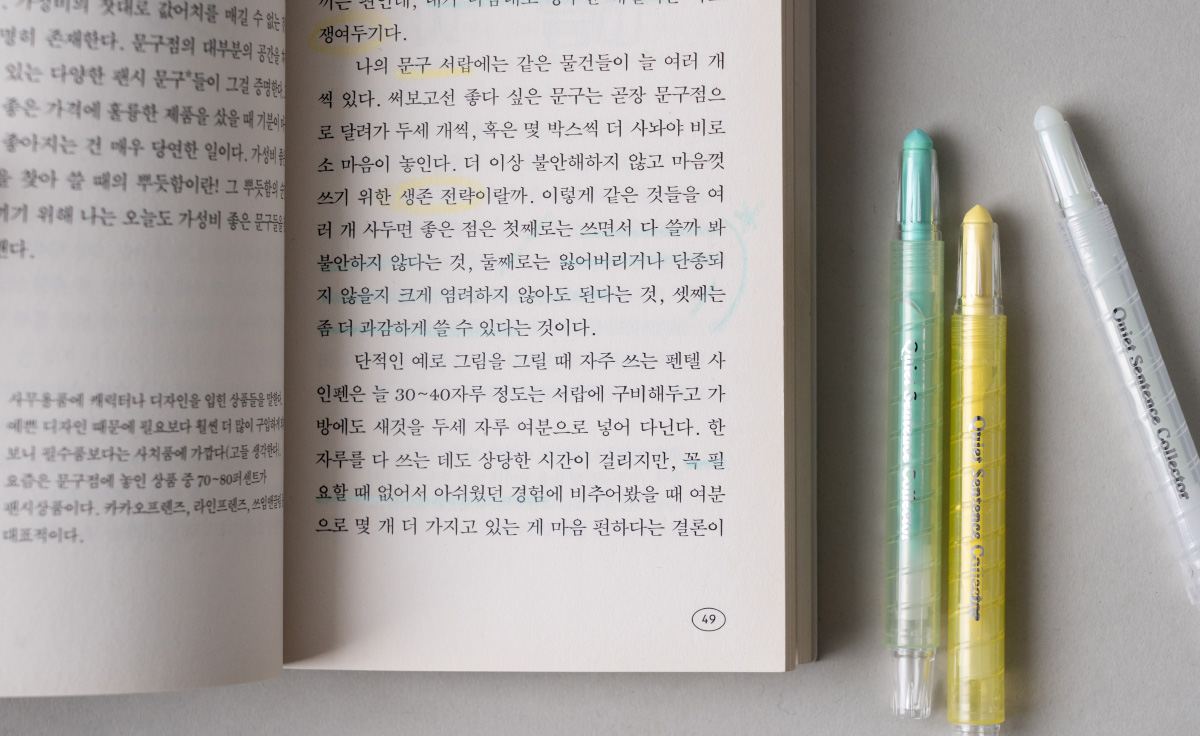 가성비의 잣대로 값어치를 매길 수 없는
명히 존재한다. 문구점의 대부분의 공간을
있는 다양한 팬시 문구*들이 그걸 증명한다.
좋은 가격에 훌륭한 제품을 샀을 때 기분이
좋아지는 건 매우 당연한 일이다. 가성비
을 찾아 쓸 때의 뿌듯함이란! 그 뿌듯함의
끼기 위해 나는 오늘도 가성비 좋은 문구들을
맨다.
사무용품에 캐릭터나 디자인을 입힌 상품들을 말한다.
예쁜 디자인 때문에 필요보다 훨씬 더 많이 구입하게
보니 필수품보다는 사치품에 가깝다(고들 생각한다).
요즘은 문구점에 놓인 상품 중 70~80퍼센트가
팬시상품이다. 카카오프렌즈, 라인프렌즈,
대표적이다.
쟁여두기다.
나의 문구 서랍에는 같은 물건들이 늘 여러 개
씩 있다. 써보고선 좋다 싶은 문구는 곧장 문구점으
로 달려가 두세 개씩, 혹은 몇 박스씩 더 사놔야 비로
소 마음이 놓인다. 더 이상 불안해하지 않고 마음껏
쓰기 위한 생존 전략이랄까. 이렇게 같은 것들을 여
러 개 사두면 좋은 점은 첫째로는 쓰면서 다 쓸까 봐
불안하지 않다는 것, 둘째로는 잃어버리거나 단종되
지 않을지 크게 염려하지 않아도 된다는 것, 셋째는
좀 더 과감하게 쓸 수 있다는 것이다.
단적인 예로 그림을 그릴 때 자주 쓰는 펜텔 사
인펜은 늘 30~40자루 정도는 서랍에 구비해두고 가
방에도 새것을 두세 자루 여분으로 넣어 다닌다. 한
자루를 다 쓰는 데도 상당한 시간이 걸리지만, 꼭 필
요할 때 없어서 아쉬웠던 경험에 비추어봤을 때 여분
으로 몇 개 더 가지고 있는 게 마음 편하다는 결론이
49
Quiet Sentence Collector
Quiet Sentence Collector